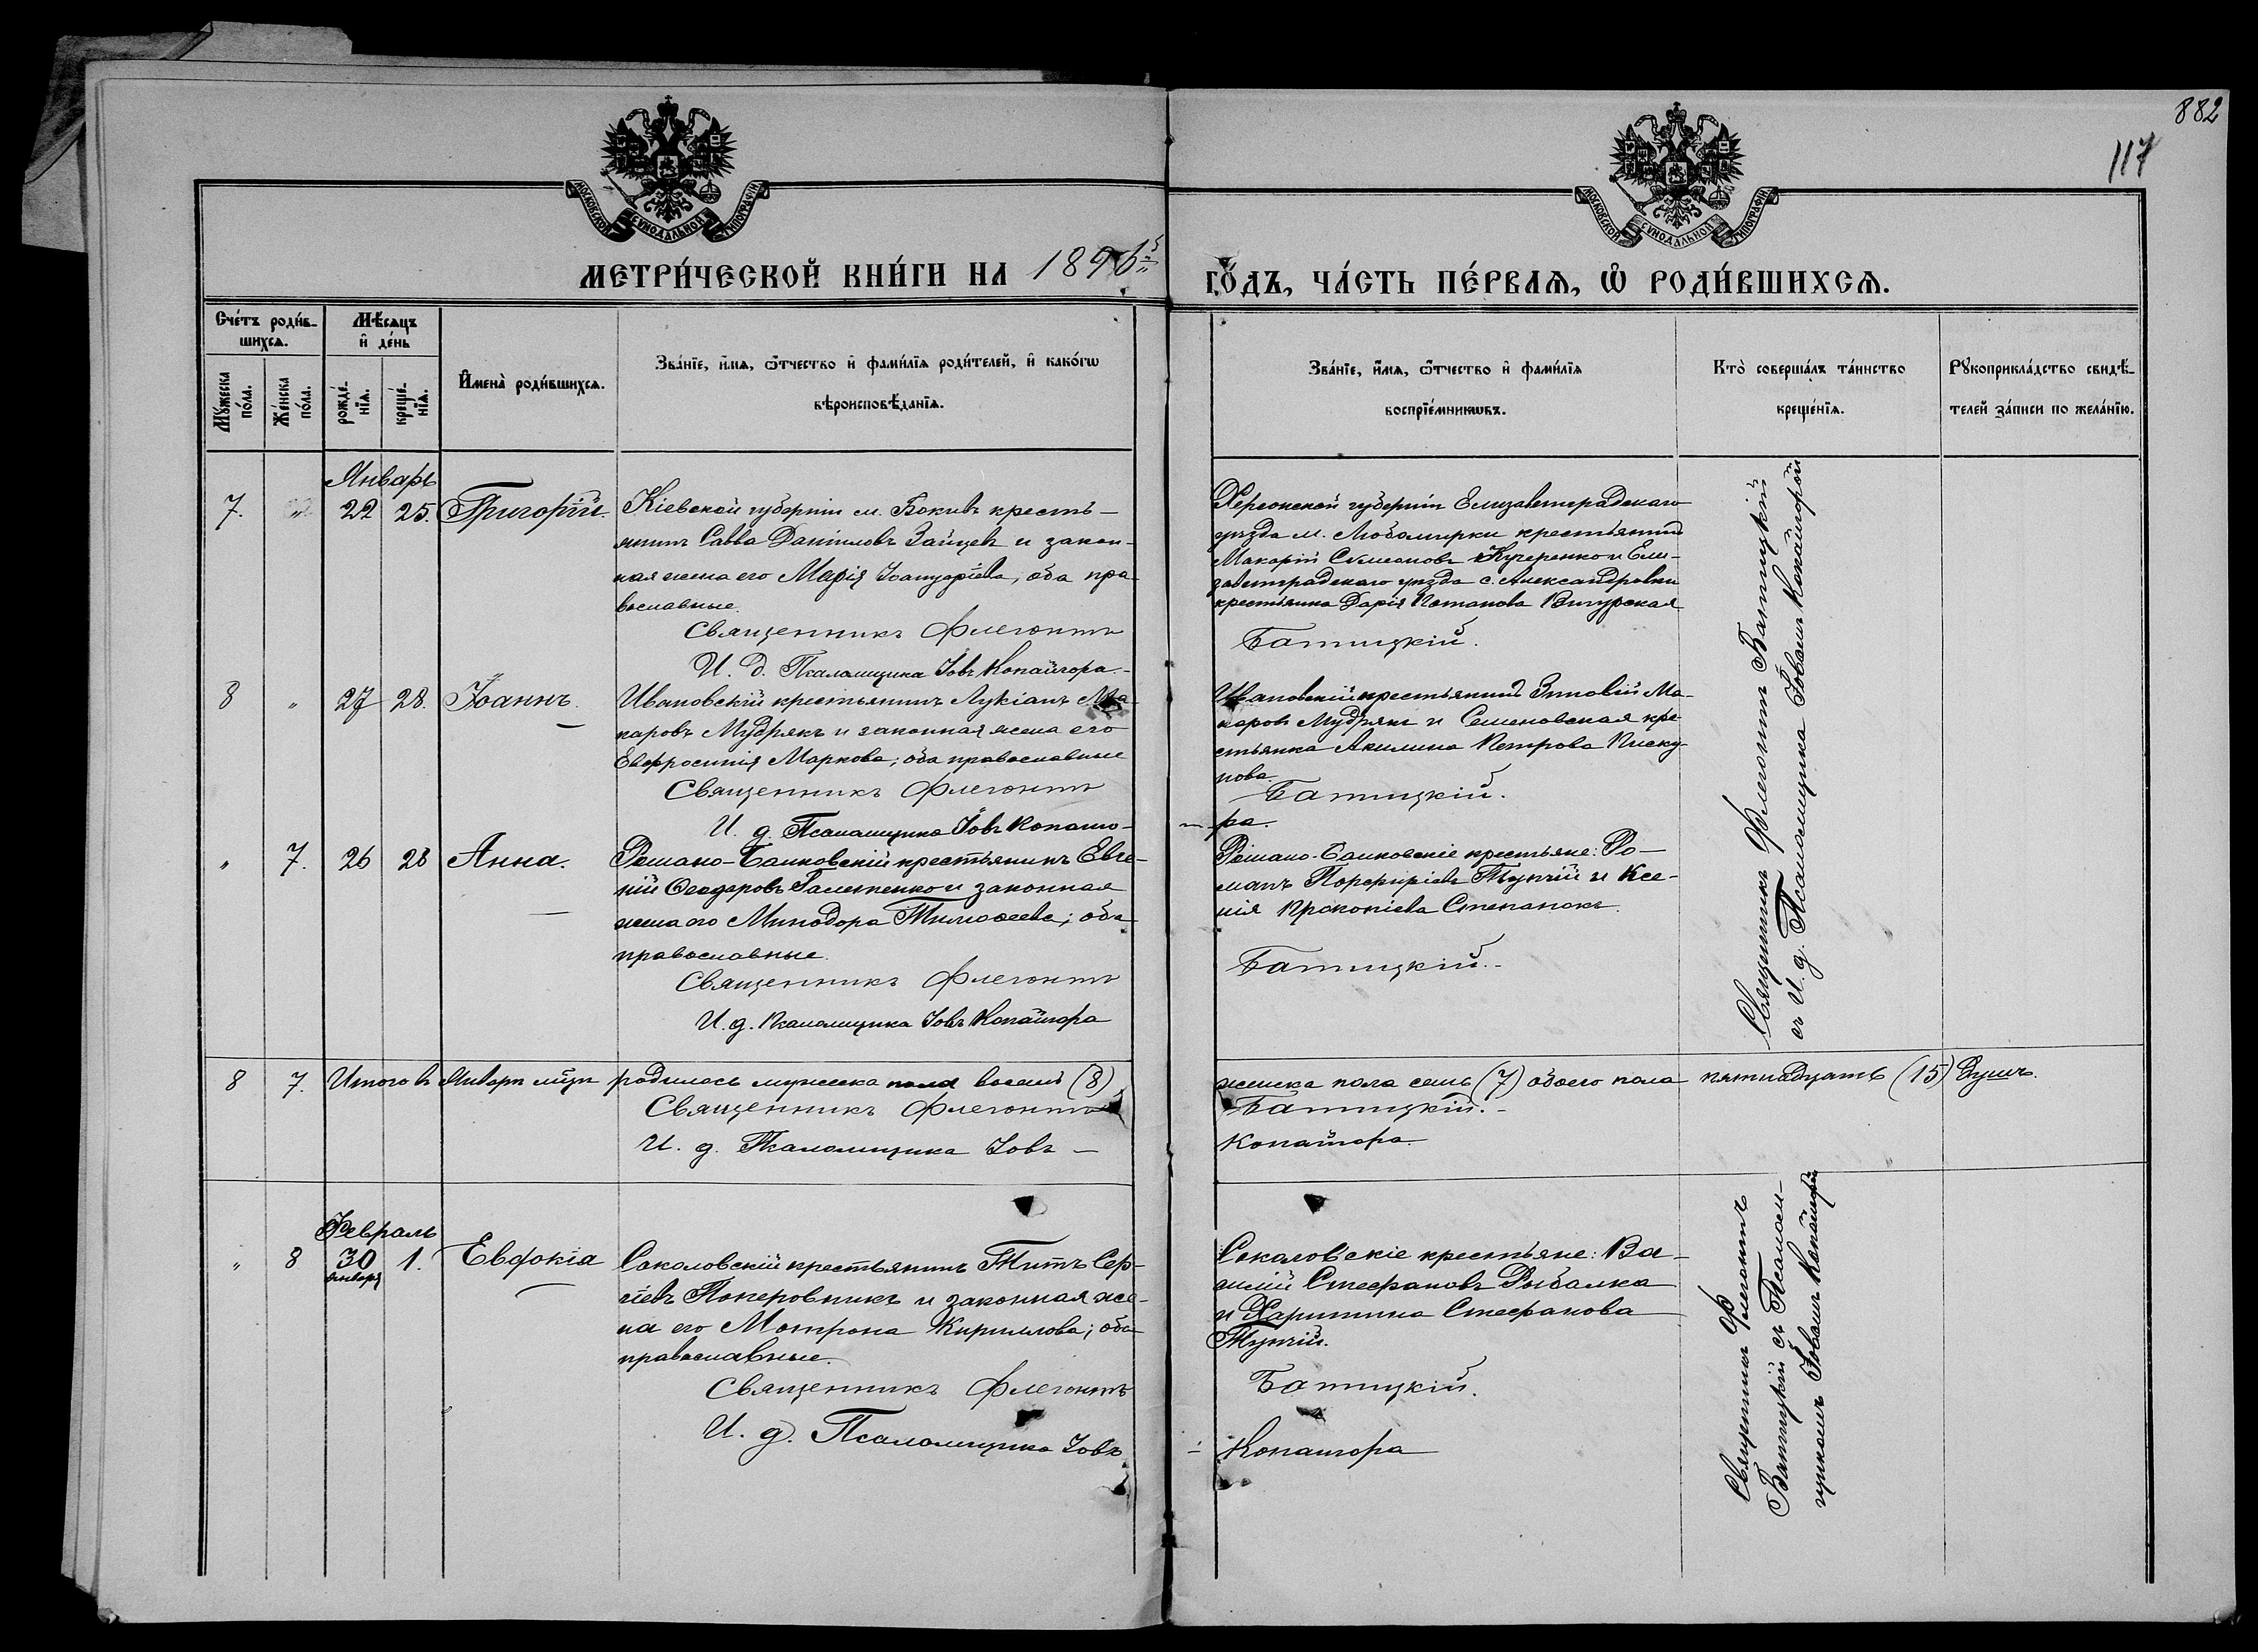 882
117
МОСКОВСКОЙ СѴНОДАЛЬНОЙ ТИПОГРАФІИ
МОСКОВСКОЙ СѴНОДАЛЬНОЙ ТИПОГРАФІИ
МЕТРИ́ЧЕСКОЙ КНИ́ГИ НА 1896й
ГО́ДЪ, ЧА́СТЬ ПЕ́РВАѦ, Ѡ҆ РОДИ́ВШИХСѦ.
Сче́тъ роди́в-
шихсѧ.
Мѣ́сѧцъ
и҆ де́нь
Мꙋ́жеска по́ла.
Же́нска по́ла.
рожде́-
нїѧ.
креще́-
нїѧ.
И҆мена̀ роди́вшихсѧ.
Зва́нїе, и҆́мѧ, ѻ҆́тчество и҆ фами́лїѧ роди́телей, и҆ како́гѡ
вѣроисповѣ́данїѧ.
Зва́нїе, и҆́мѧ, ѻ҆́тчество и҆ фами́лїѧ
воспрїе́мникѡвъ.
Кто̀ соверша́лъ та́инство
креще́нїѧ.
Рꙋкоприкла́дство свидѣ́-
телей за́писи по жела́нїю.
Январь
7. " 22 25. Григорій.
Кіевской губерніи м. Боківъ кресть-
янинъ Савва Даніиловъ Зайцевъ и закон-
ная жена его Марія Іоануаріева, оба пра-
вославные.
Священникъ Флегонтъ
И. д. Псаломщика Іовъ Копайгора.
Херсонской губерніи Елизаветградскаго
уѣзда м. Любомирки крестьянинъ
Макарій Симеоновъ Кучеренко и Ели-
заветградскаго уѣзда с. Александровки
крестьянка Дарія Потапова Вигурская
Батицкій.
Священникъ Флегонтъ Батицкій
съ И. д. Псаломщика Іовомъ Копайгорой
8 " 27 28. Іоаннъ.
Ивановскій крестьянинъ Лукіанъ Ма-
каровъ Мудрякъ и законная жена его
Евфросинія Маркова; оба православные
Священникъ Флегонтъ
И. д. Псаломщика Іовъ Копайго-
Ивановскій крестьянинъ Зиновій Ма-
каровъ Мудрякъ и Семеновская кре-
стьянка Акилина Петрова Писку-
нова.
Батицкій.
ра.
" 7. 26 28 Анна.
Рошано-Балковскій крестьянинъ Евге-
ній Ѳеодоровъ Галепенко и законная
жена его Минодора Тимоѳеева; оба
православные.
Священникъ Флегонтъ
И. д. Псаломщика Іовъ Копайгора
Рошано-Балковскіе крестьяне: Ро-
манъ Порфиріевъ Тупчій и Ксе-
нія Прокопіева Степанокъ.
Батицкій.
8 7. Итого въ Январѣ м-цѣ родилось мужеска пола восемь (8),
женска пола семь (7) обоего пола пятнадцать (15) душъ.
Священникъ Флегонтъ
Батицкій.
И. д. Псаломщика Іовъ
Копайгора.
Февраль
" 8 30 января 1. Евдокія
Соколовскій крестьянинъ Титъ Сер-
гіевъ Покеровникъ и законная же-
на его Мотрона Кириллова; оба
православные.
Священникъ Флегонтъ
И. д. Псаломщика Іовъ
Соколовскіе крестьяне: Ва-
силій Стефановъ Рыбалка
и Харитина Стефанова
Тупчій.
Батицкій.
Копайгора
Священникъ Флегонтъ
Батицкій съ Псалом-
щикомъ Іовомъ Копайгорой